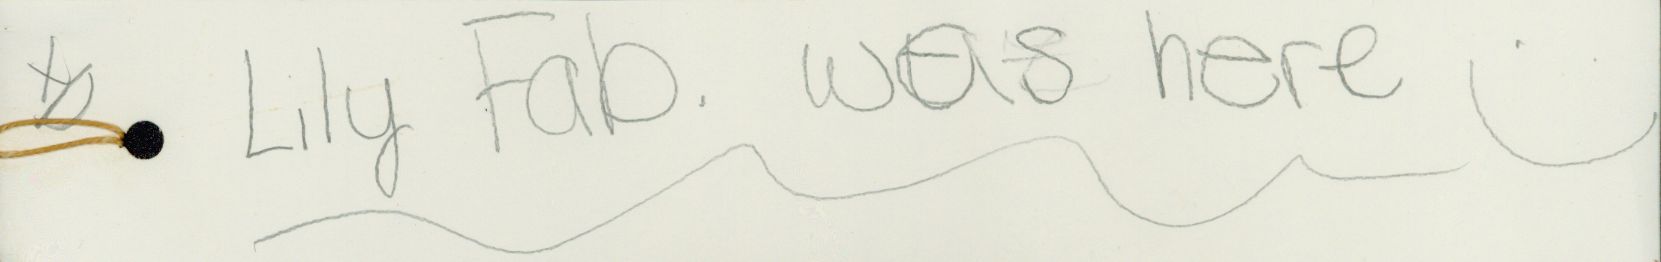 Lily Fab. was here